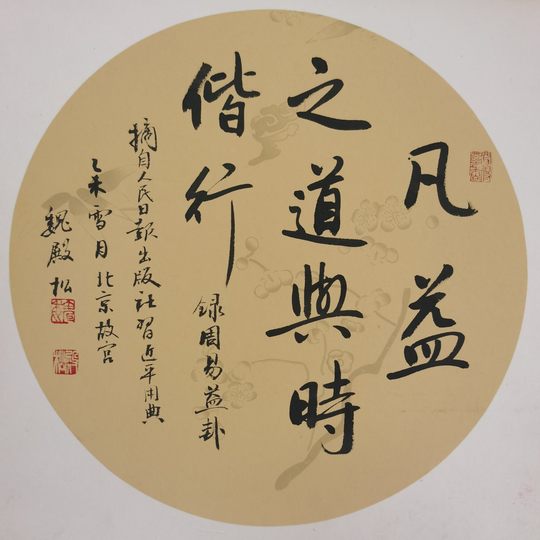 凡益
之道與時
偕行
録周易益卦
摘自人民日報出版社習近平用典
乙未雪月北京故宫
魏殿松